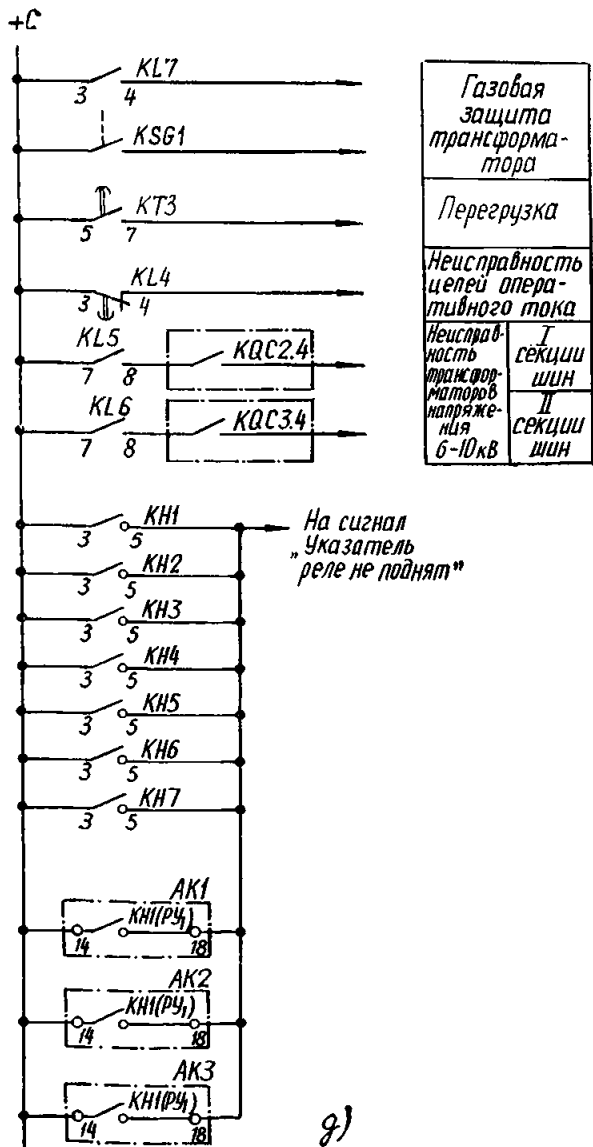 +С
KL7
3 4
KSG1
KT3
5 7
KL4
3 4
KL5
7 8
KQC2.4
KL6
7 8
KQC3.4
Газовая
защита
трансформа-
тора
Перегрузка
Неисправность
цепей опера-
тивного тока
Неисправ-
ность
трансфор-
маторов
напряже-
ния
6-10кВ
I
секции
шин
II
секции
шин
KH1
3 5
На сигнал
„Указатель
реле не поднят"
KH2
3 5
KH3
3 5
KH4
3 5
KH5
3 5
KH6
3 5
KH7
3 5
AK1
KH1(РУ1)
14 18
AK2
KH1(РУ1)
14 18
AK3
KH1(РУ1)
14 18
д)